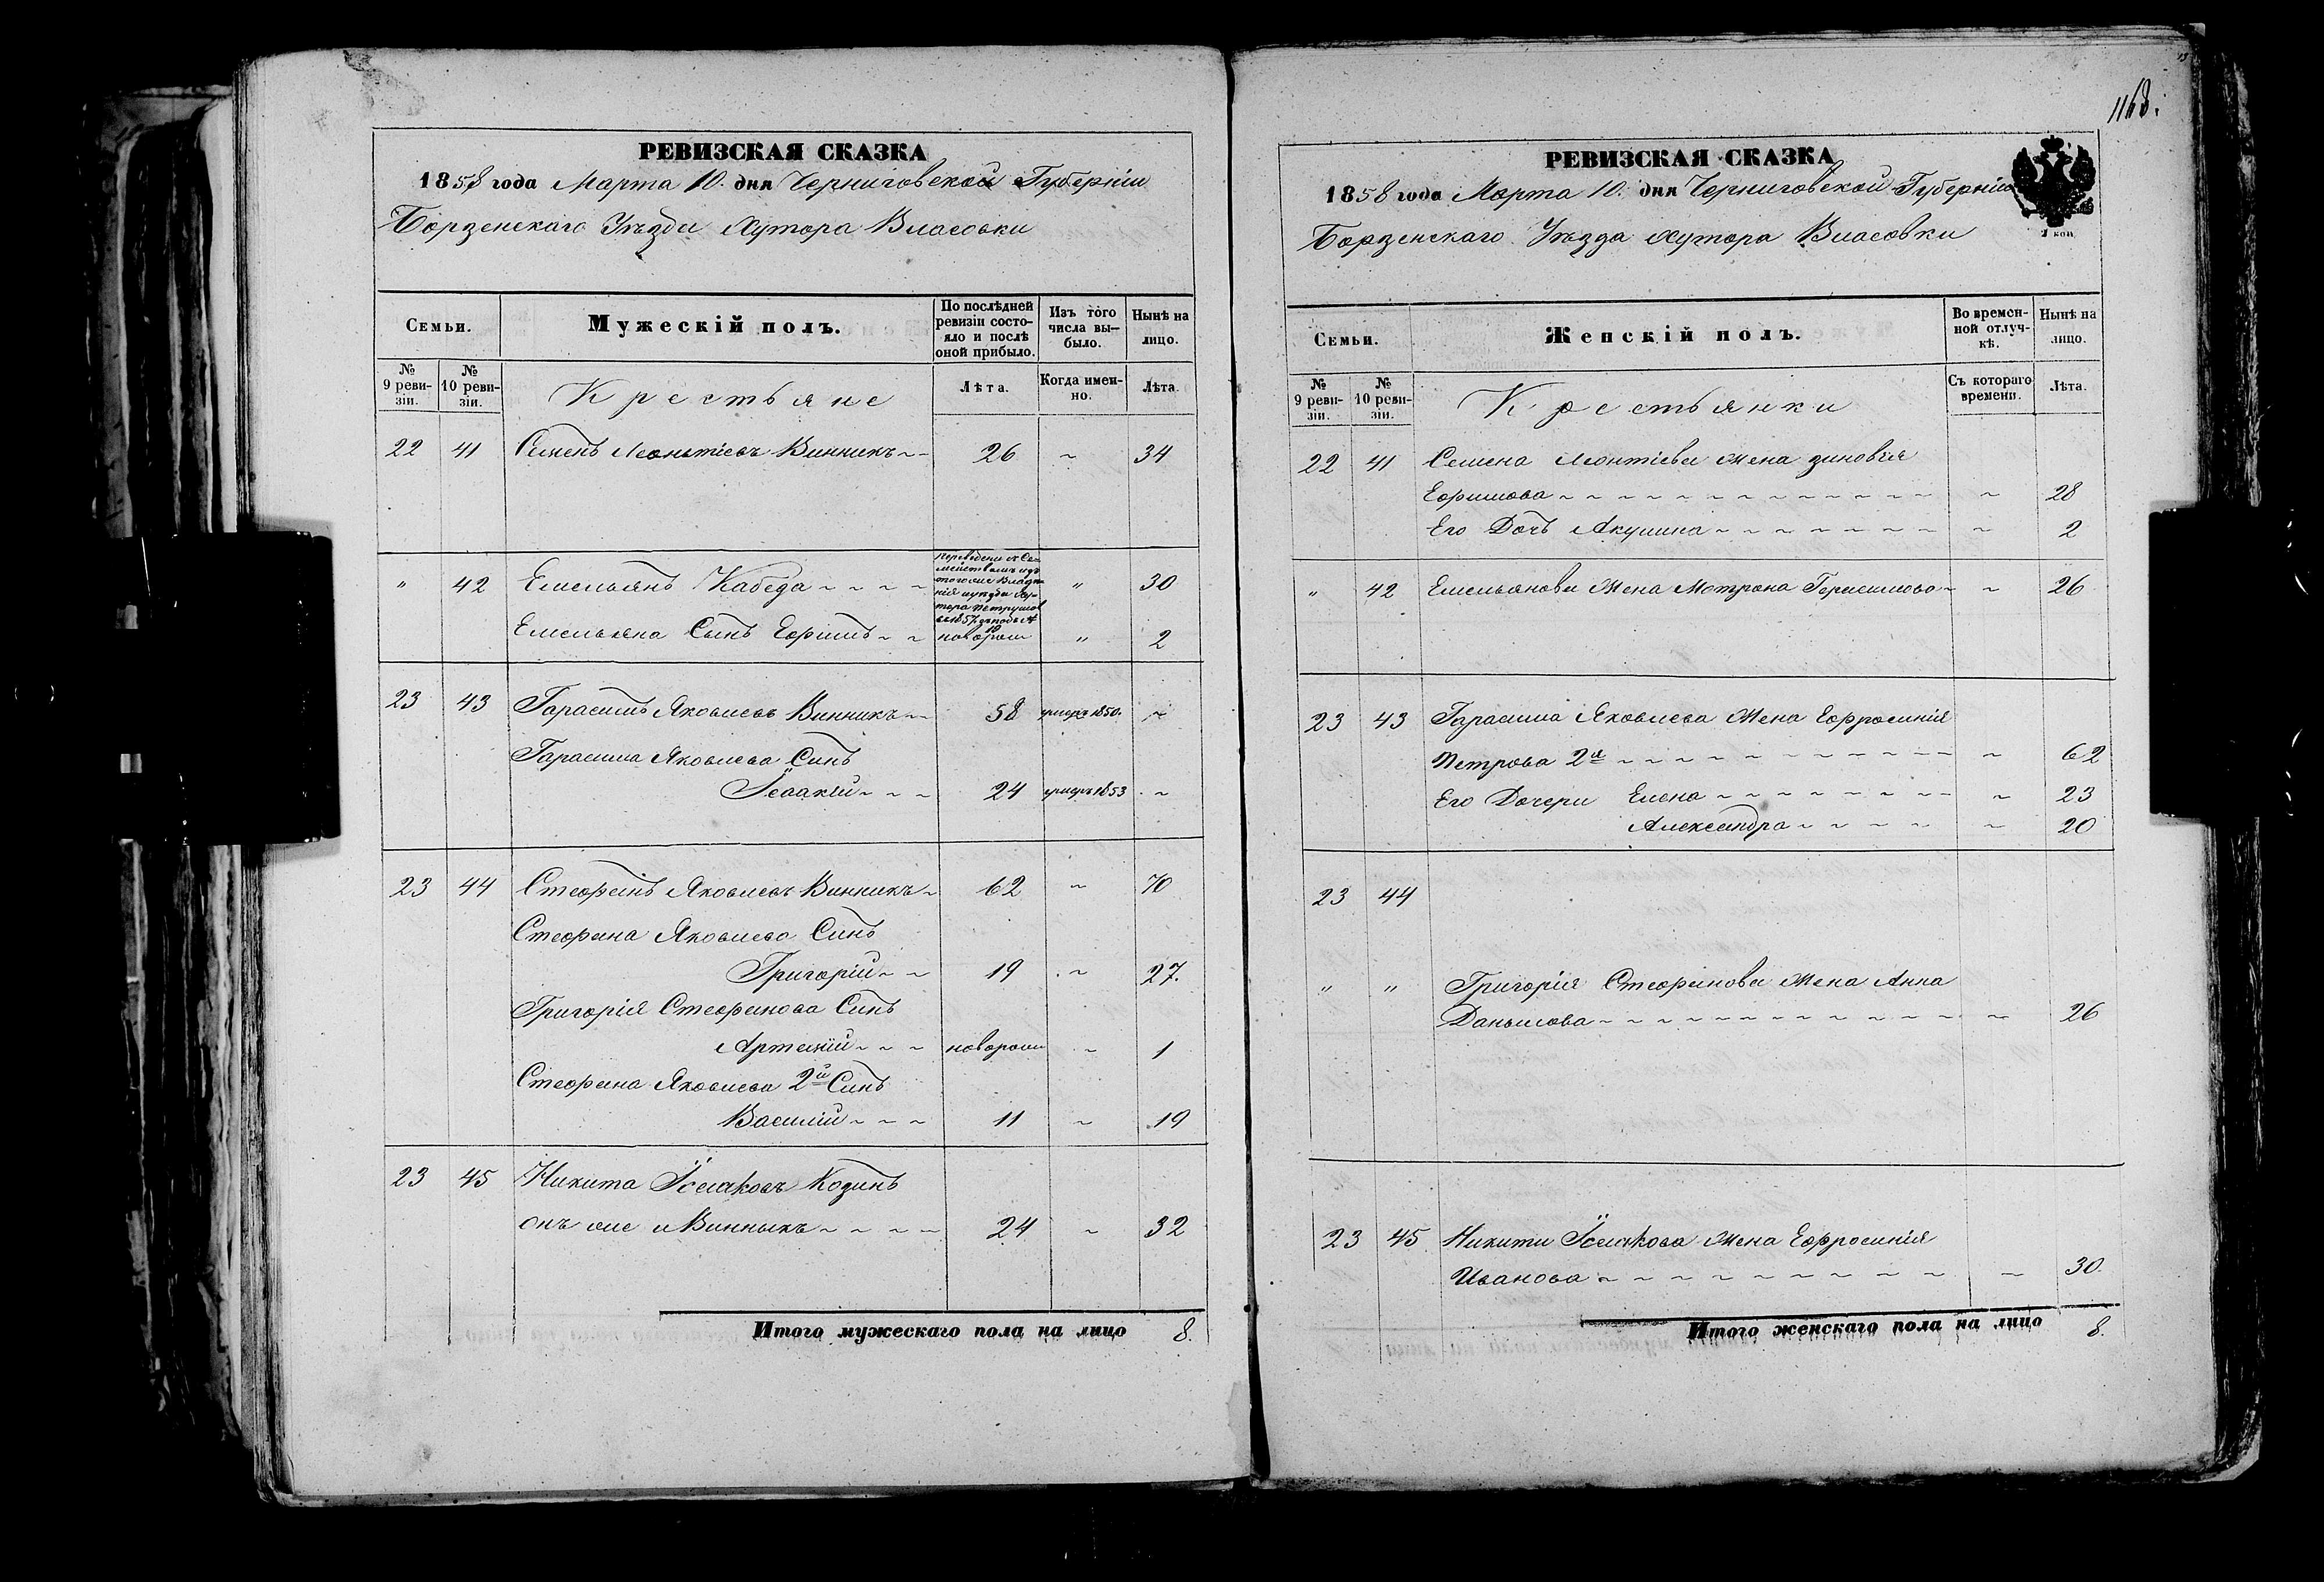 РЕВИЗСКАЯ СКАЗКА
1858 года Марта 10. дня Черниговской Губерніи
Борзенскаго Уѣзда Хутора Власовки
Семьи.
Мужескій полъ.
По послѣдней ревизіи состояло и послѣ оной прибыло.
Изъ того числа выбыло.
Нынѣ на лицо.
№ 9 ревизіи.
№ 10 ревизіи.
Крестьяне
Лѣта.
Когда именно.
Лѣта.
22 41 Семенъ Леонтіевъ Винникъ 26 34
" 42 Емельянъ Кабеда " 30
Емельяна Сынъ Ефимъ новорож " 2
23 43 Гарасимъ Яковлевъ Винникъ 58 умеръ 1850.
Гарасима Яковлева Синъ
Ісаакій 24 умеръ 1853
23 44 Стефанъ Яковлевъ Винникъ 62 70
Стефана Яковлева Синъ
Григорій 19 27.
Григорія Стефанова Синъ
Артемій новорож 1
Стефана Яковлева 2й Синъ
Василій 11 19
23 45 Никита Ісааковъ Козинъ
онъ же и Винныкъ 24 32
Итого мужескаго пола на лицо 8.
1168.
РЕВИЗСКАЯ СКАЗКА
1858 года Марта 10. дня Черниговской Губерніи
Борзенскаго Уѣзда Хутора Власовки
Семьи.
Женскій полъ.
Во временной отлучкѣ.
Нынѣ на лицо.
№ 9 ревизіи.
№ 10 ревизіи.
Крестьянки
Съ котораго времени.
Лѣта.
22 41 Семена Леонтіева жена Зиновія
Ефимова 28
Его Дочь Акулина 2
" 42 Емельянова Жена Мотрона Герасимова 26
23 43 Гарасима Яковлева Жена Ефросинія
Петрова 2я 62
Его Дочери Елена 23
Александра 20
23 44
" " Григорія Стефанова Жена Анна
Данилова 26
23 45 Никити Ісаакова Жена Ефросинія
Иванова 30.
Итого женскаго пола на лицо 8.